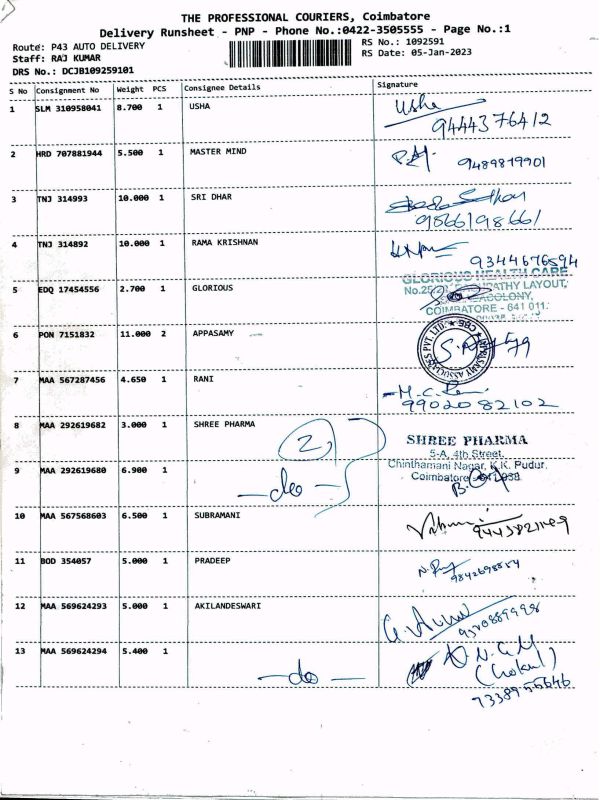 THE PROFESSIONAL COURIERS, Coimbatore
Delivery Runsheet - PNP - Phone No.:0422-3505555 - Page No.:1
Route: P43 AUTO DELIVERY RS No.: 1092591
Staff: RAJ KUMAR RS Date: 05-Jan-2023
DRS No.: DCJB109259101
S No Consignment No Weight PCS Consignee Details Signature
1 SLM 310958041 8.700 1 USHA Usha
9444376412
2 HRD 707881944 5.500 1 MASTER MIND 9489819901
3 TNJ 314993 10.000 1 SRI DHAR
9866198661
4 TNJ 314892 10.000 1 RAMA KRISHNAN
9344676594
GLORIOUS HEALTH CARE
5 EDQ 17454556 2.700 1 GLORIOUS
COIMBATORE - 641 011.
6 PON 7151832 11.000 2 APPASAMY
7 MAA 567287456 4.650 1 RANI
9902082102
8 MAA 292619682 3.000 1 SHREE PHARMA 2 SHREE PHARMA
5-A, 4th Street,
9 MAA 292619680 6.900 1 Chinthamani Nagar, K.K. Pudur,
—do— Coimbatore
10 MAA 567568603 6.500 1 SUBRAMANI
11 BOD 354057 5.000 1 PRADEEP
12 MAA 569624293 5.000 1 AKILANDESWARI
13 MAA 569624294 5.400 1 N.G.M
—do—